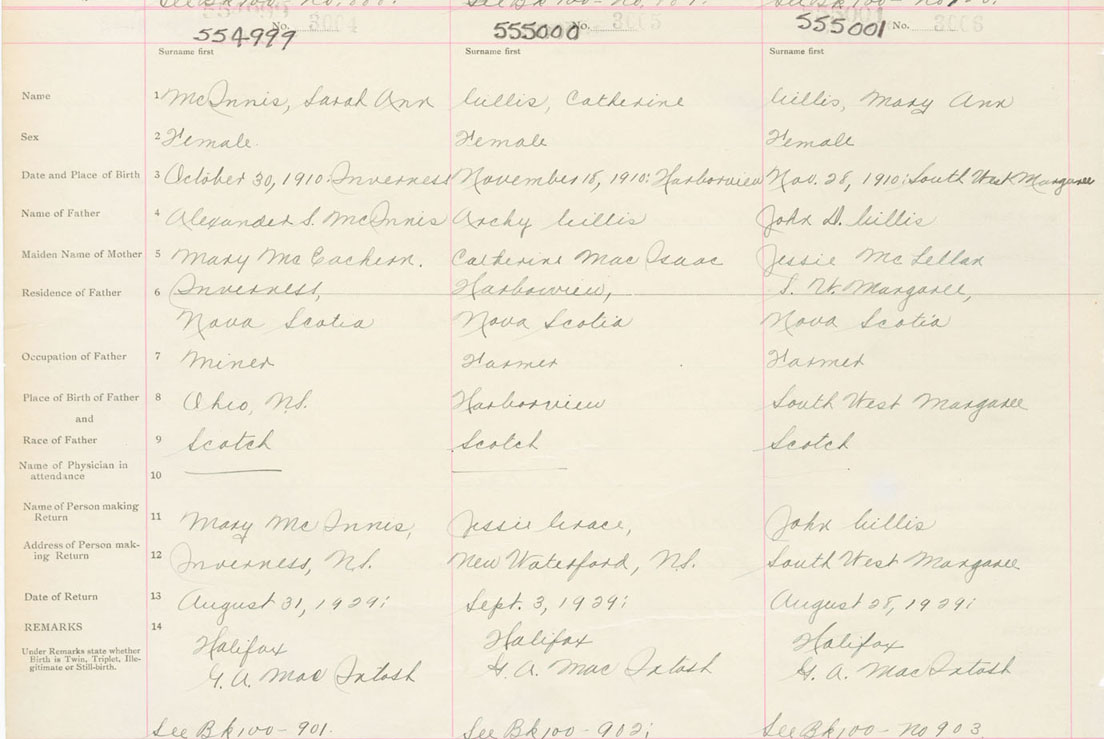 554999 No. 3004 555000 No. 3005 555001 No. 3006
Surname first Surname first Surname first
Name 1 McInnis, Sarah Ann Gillis, Catherine Gillis, Mary Ann
Sex 2 Female Female Female
Date and Place of Birth 3 October 30, 1910: Inverness November 18, 1910: Harborview Nov. 28, 1910: South West Margaree
Name of Father 4 Alexander S. McInnis Archy Gillis John D. Gillis
Maiden Name of Mother 5 Mary McEachern. Catherine MacIsaac Jessie McLellan
Residence of Father 6 Inverness, Harborview, S. W. Margaree,
Nova Scotia Nova Scotia Nova Scotia
Occupation of Father 7 Miner Farmer Farmer
Place of Birth of Father 8 Ohio, N.S. Harborview South West Margaree
and
Race of Father 9 Scotch Scotch Scotch
Name of Physician in
attendance 10
Name of Person making
Return 11 Mary McInnis, Jessie Grace, John Gillis
Address of Person mak-
ing Return 12 Inverness, N.S. New Waterford, N.S. South West Margaree
Date of Return 13 August 31, 1929: Sept. 3, 1929: August 28, 1929:
REMARKS 14 Halifax Halifax Halifax
Under Remarks state whether
Birth is Twin, Triplet, Ille-
gitimate or Still-birth.
G. A. MacIntosh G. A. MacIntosh G. A. MacIntosh
See Bk 100 - 901. See Bk 100 - 902: See Bk 100 - No 903.